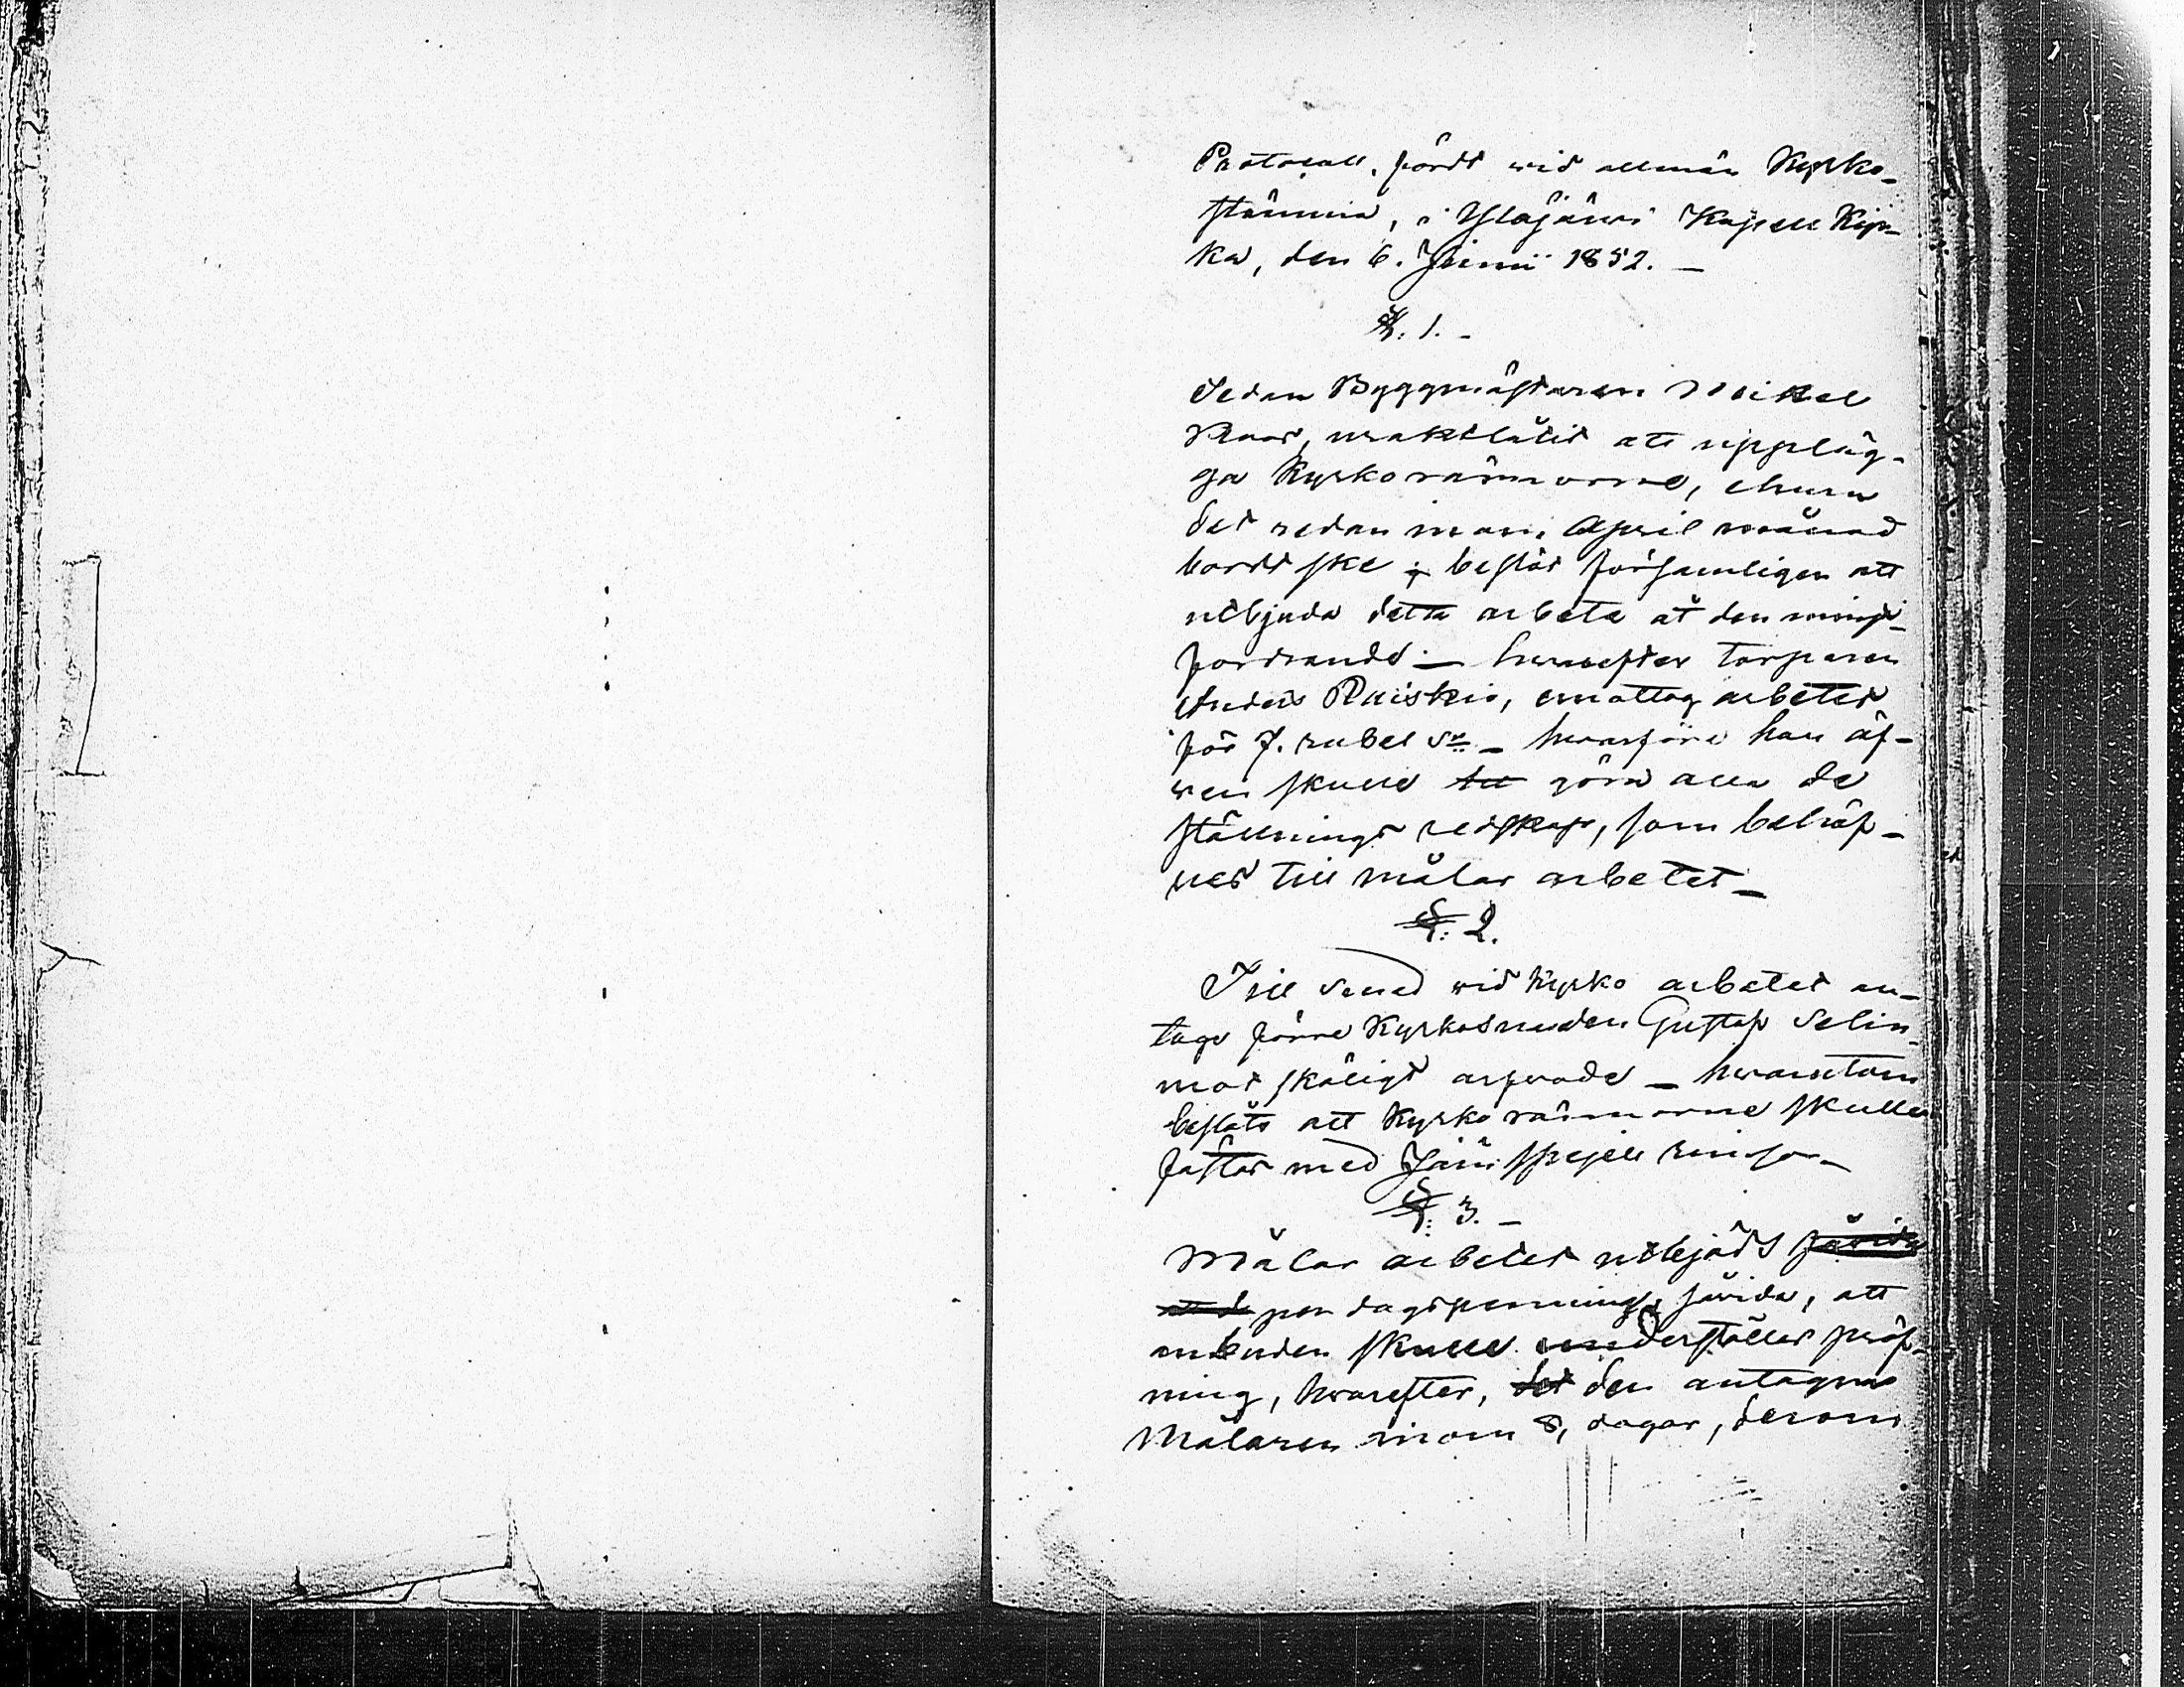 Protocoll, fördt wid allmän Kyrko-
stämma, i Ylöjärwi Kapell Kyr-
ka, den 6. Junii 1852. -
§. 1. -
Sedan Byggmästaren Mickel
Roos, uraktlåtit att uppläg-
ga Kyrkorännorne, ehuru
det redan inom April månad
bordt ske; beslöt församligen att
utbjuda detta arbete åt den minst
fordrande - hwarefter torparen
Anders Ruiskio, emottog arbetet
för 7. rubel Sr - hwarföre han äf-
wen skulle göra alla de
ställnings redskap, som behöf-
wes till målar arbetet -
§: 2.
Till smed wid Kyrko arbetet an-
togs förre Kyrkosmeden Gustaf Selin
mot skäligt arfwode - hwarutom
beslöts att Kyrko rännorne skulle
fästas med Järn
§: 3. -
Målar arbetet utbjöds
per dagspenning, såvida, att
anbuden skulle underställes pröf-
ning, hwarefter, den antagna
Målaren inom 8, dagar, derom